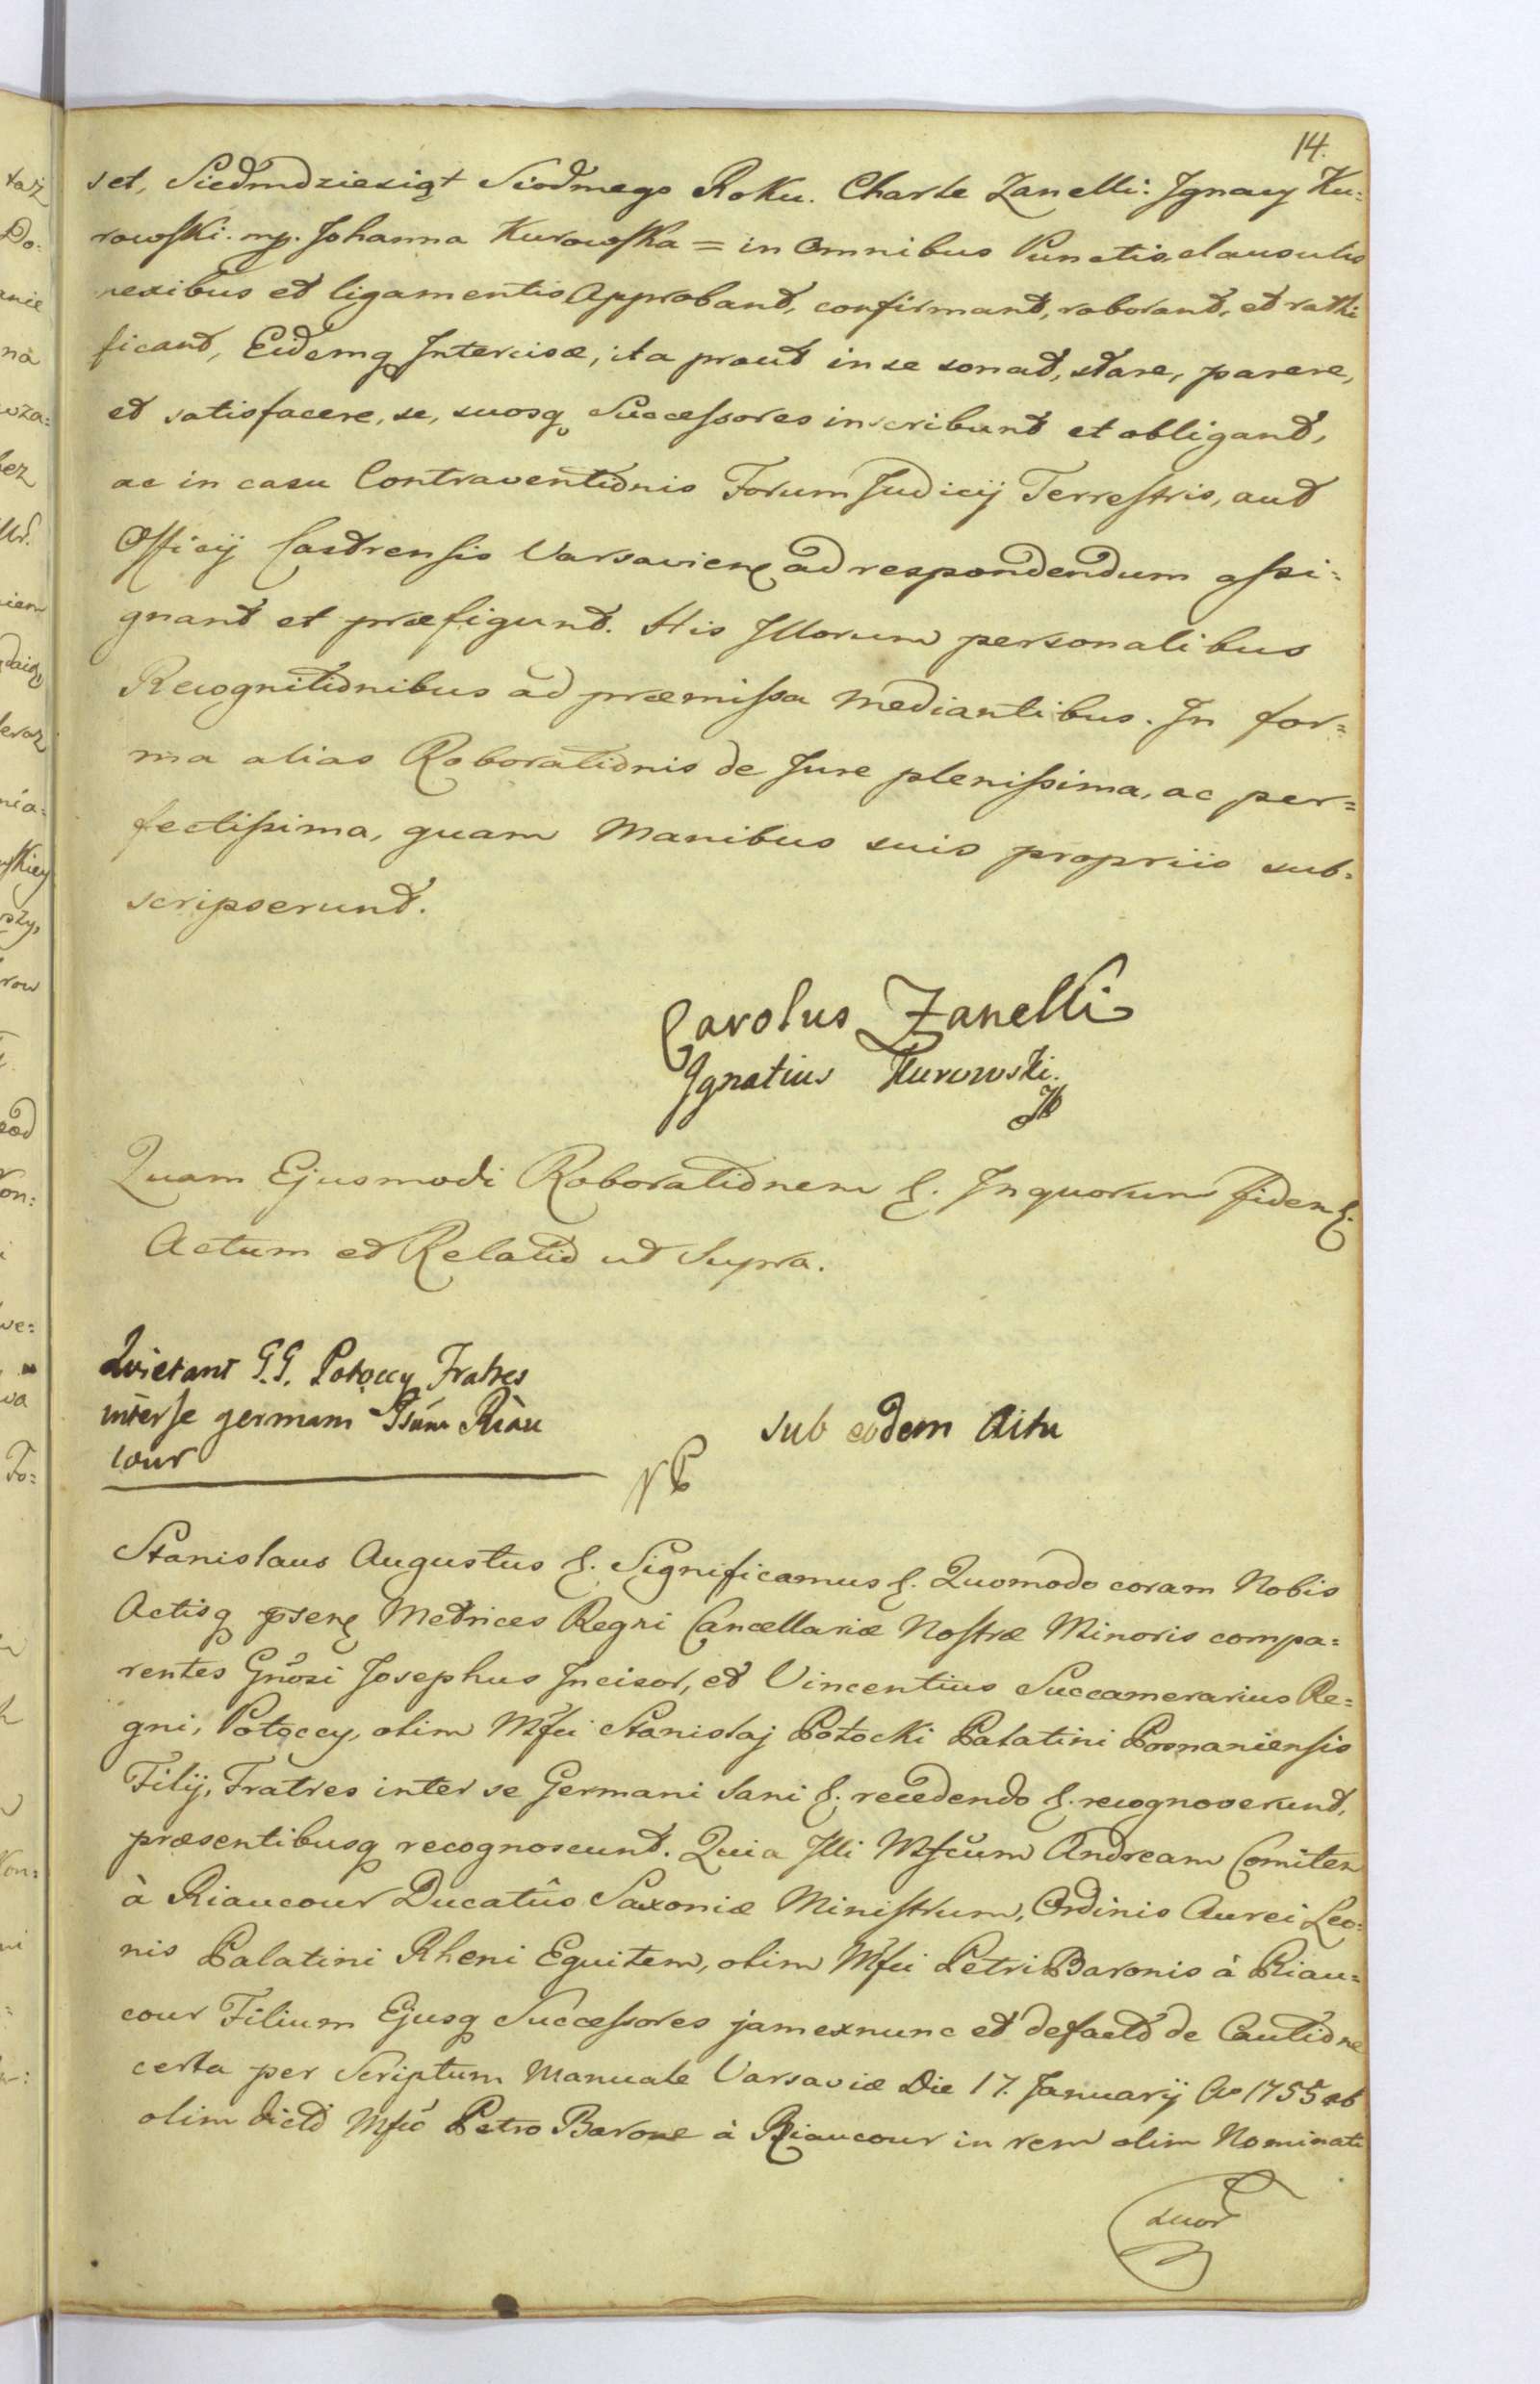 14.
set, Siedmdziesiąt Siodmego Roku. Charle Zanelli: Ignacy Ku=
rowski. mp. Johanna Kurowska = in Omnibus Punctis, clausulis
nexibus et ligamentis Approbant, confirmant, roborant, et rathi
ficant, Eidemq Intercisæ, ita prout in se sonat, stare, parere,
et satisfacere, se, suosq Successores inscribunt et obligant,
ac in casu Contraventionis Forum Judicij Terrestris, aut
Officij Castrensis Varsavien ad respondendum assi=
gnant et præfigunt. His Illorum personalibus
Recognitionibus ad præmissa mediantibus. In for=
ma alias Roborationis de Jure plenissima, ac per=
fectissima, quam Manibus suis propriis sub=
scripserunt.
Carolus Zanelli
Ignatius Kurowski.
Quam Ejusmodi Roborationem &. In quorum fidem &.
Actum et Relatio ut Supra.
Quietant G.G. Potoccy Fratres
inter se germani Riau
cour
sub eodem Actu
Stanislaus Augustus &. Significamus &. Quomodo coram Nobis
Actisq psen Metrices Regni Cancellariæ Nostræ Minoris compa=
rentes Gnosi Josephus Incisor, et Vincentius Succamerarius Re=
gni, Potoccy, olim Mfci Stanislaj Potocki Palatini Posnaniensis
Filij, Fratres inter se Germani Sani &. recedendo &. recognoverunt,
præsentibusq recognoscunt. Quia Illi Mfcum Andream Comitem
à Riaucour Ducatûs Saxoniæ Ministrum, Ordinis Aurei Leo=
nis Palatini Rheni Equitem, olim Mfci Petri Baronis à Riau=
cour Filium Ejusq Successores jam exnunc et defacto de Cautione
certa per Scriptum Manuale Varsaviæ Die 17. Januarij Ao 1755 ab
olim dicto Mfco Petro Barone à Riaucour in rem olim Nominati
suor